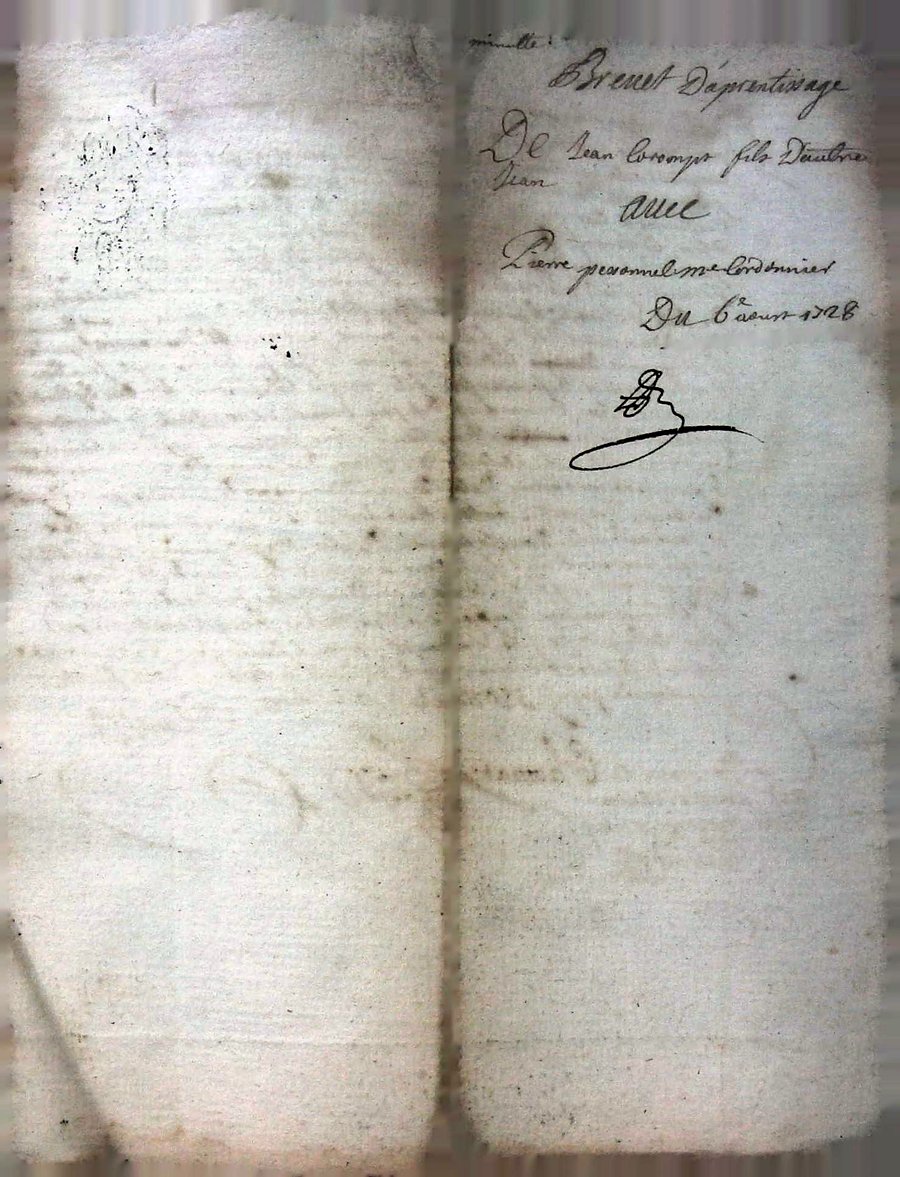 minutte :
Brevet D'aprentissage
De Jean Corompt fils D'autre
Jean
avec
Pierre personnel me Cordonnier
Du 6e aoust 1728